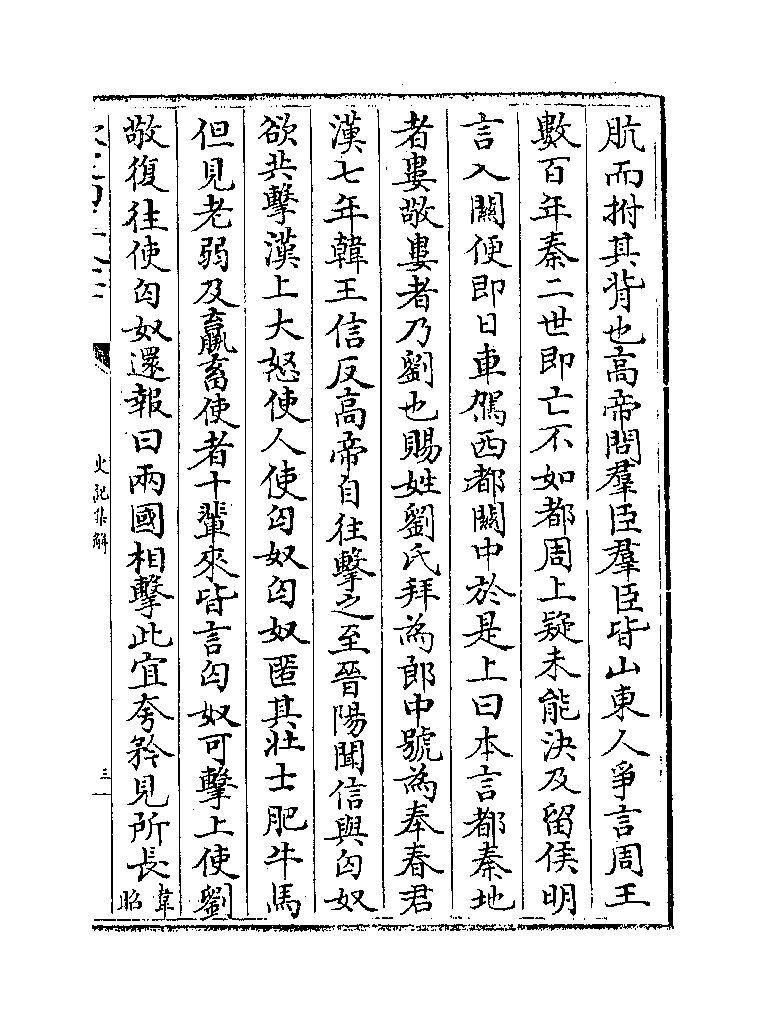 肮而拊其背也高帝問羣臣羣臣皆山東人爭言周王
數百年秦二世即亡不如都周上疑未能決及留侯明
言入關便即日車駕西都關中於是上曰本言都秦地
者婁敬婁者乃劉也賜姓劉氏拜為郎中號為奉春君
漢七年韓王信反高帝自往擊之至晉陽聞信與匈奴
欲共擊漢上大怒使人使匈奴匈奴匿其壯士肥牛馬
但見老弱及羸畜使者十輩來皆言匈奴可擊上使劉
敬復往使匈奴還報曰兩國相擊此宜夸矜見所長韋
昭
史記集解
三